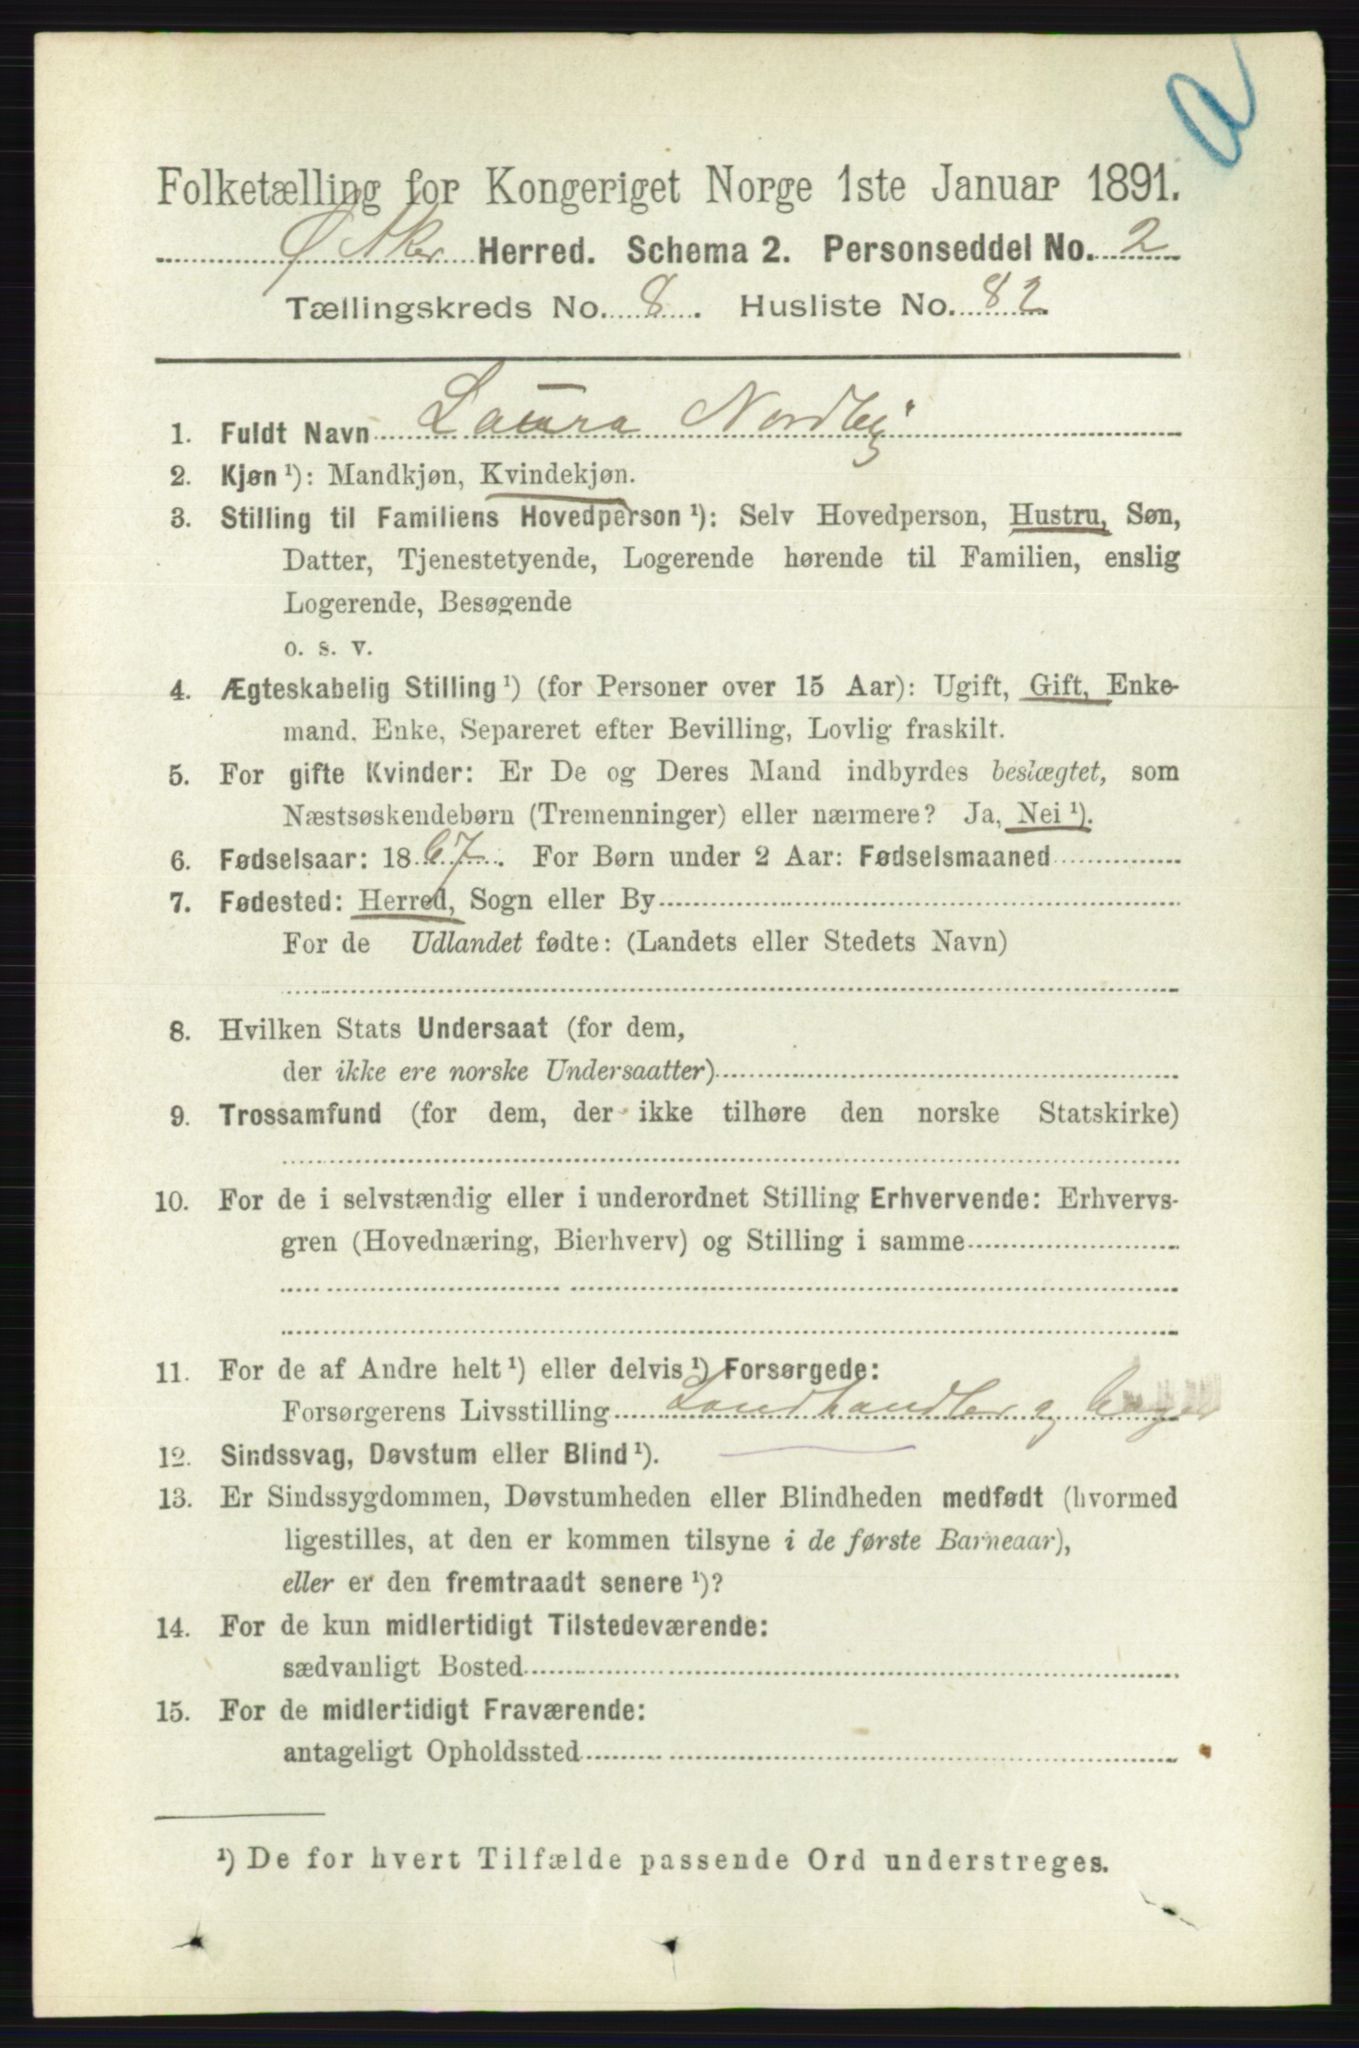 a
Folketælling for Kongeriget Norge 1ste Januar 1891.
Ø Aker Herred. Schema 2. Personseddel No. 2
Tællingskreds No. 8. Husliste No. 82
1. Fuldt Navn Laura Nordby
2. Kjøn ¹): Mandkjøn, Kvindekjøn.
3. Stilling til Familiens Hovedperson ¹): Selv Hovedperson, Hustru, Søn,
Datter, Tjenestetyende, Logerende hørende til Familien, enslig
Logerende, Besøgende
o. s. v.
4. Ægteskabelig Stilling ¹) (for Personer over 15 Aar): Ugift, Gift, Enke-
mand, Enke, Separeret efter Bevilling, Lovlig fraskilt.
5. For gifte Kvinder: Er De og Deres Mand indbyrdes beslægtet, som
Næstsøskendebørn (Tremenninger) eller nærmere? Ja, Nei ¹).
6. Fødselsaar: 1867. For Børn under 2 Aar: Fødselsmaaned
7. Fødested: Herred, Sogn eller By
For de Udlandet fødte: (Landets eller Stedets Navn)
8. Hvilken Stats Undersaat (for dem,
der ikke ere norske Undersaatter)
9. Trossamfund (for dem, der ikke tilhøre den norske Statskirke)
10. For de i selvstændig eller i underordnet Stilling Erhvervende: Erhvervs-
gren (Hovednæring, Bierhverv) og Stilling i samme
11. For de af Andre helt ¹) eller delvis ¹) Forsørgede:
Forsørgerens Livsstilling Landhandler og
12. Sindssvag, Døvstum eller Blind ¹).
13. Er Sindssygdommen, Døvstumheden eller Blindheden medfødt (hvormed
ligestilles, at den er kommen tilsyne i de første Barneaar),
eller er den fremtraadt senere ¹)?
14. For de kun midlertidigt Tilstedeværende:
sædvanligt Bosted
15. For de midlertidigt Fraværende:
antageligt Opholdssted
¹) De for hvert Tilfælde passende Ord understreges.